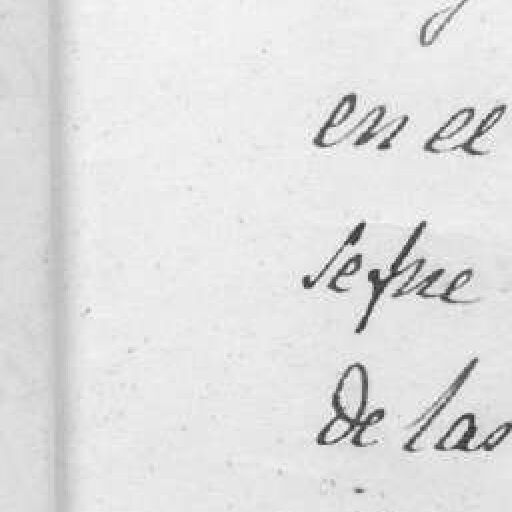 en el
se fue
de las